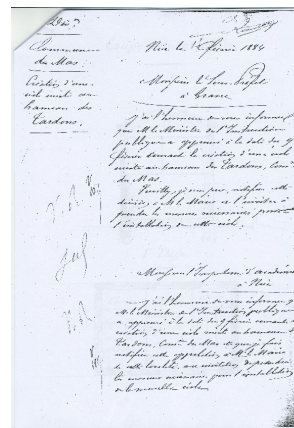 Commune
du Mas.
Création d'une
école mixte au
hameau des
Tardons.
Nice le 12 février 1884
Monsieur le Sous-Préfet
à Grasse
J'ai l'honneur de vous informer
que M. le Ministre de l'Instruction
publique a approuvé à la date du 9
février courant la création d'une école
mixte au hameau des Tardons, Comne
du Mas.
Veuillez, je vous prie, notifier cette
décision à M. le Maire et l'inviter à
prendre les mesures nécessaires pour
l'installation de cette école.
Monsieur l'Inspecteur d'académie
à Nice
J'ai l'honneur de vous informer que
M. le Ministre de l'Instruction publique
a approuvé à la date du 9 février courant la
création d'une école mixte au hameau des
Tardons, Comne du Mas et que je fais
notifier cette approbation à M. le Maire
de cette localité, en l'invitant à prendre
les mesures nécessaires pour l'installation
de la nouvelle école.